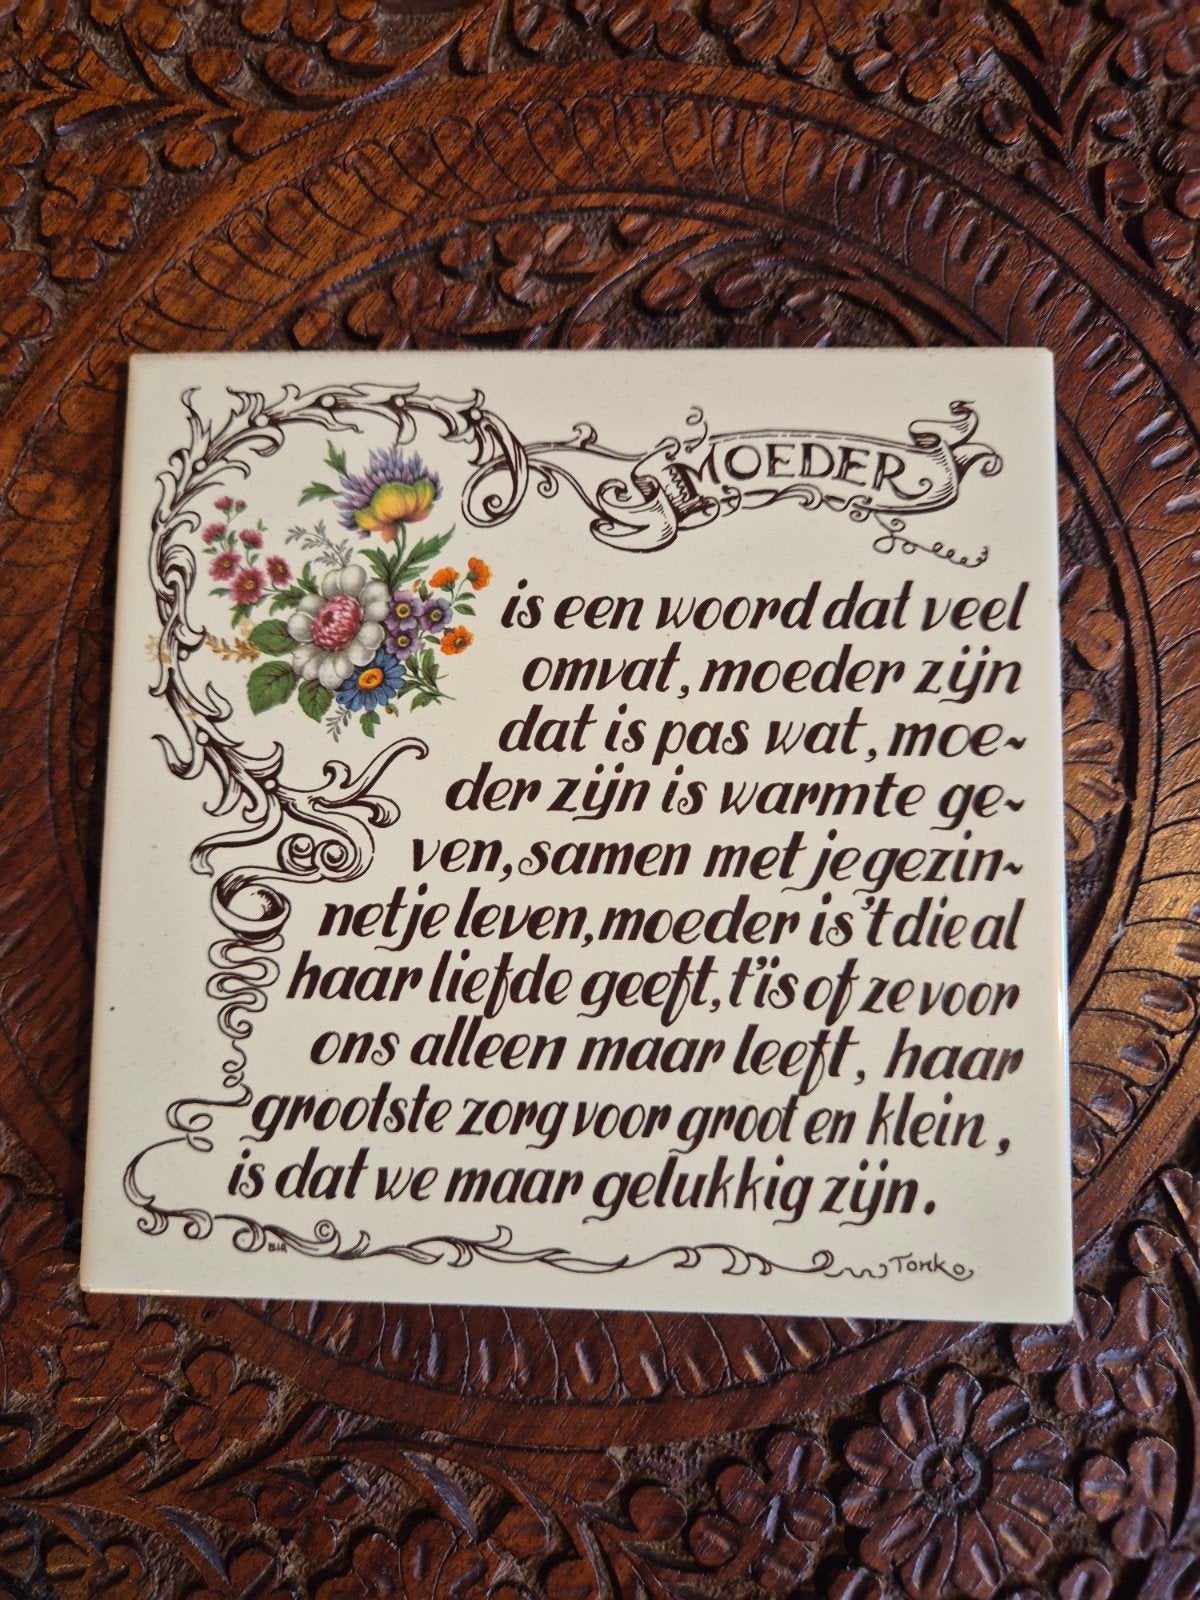 MOEDER
is een woord dat veel
omvat, moeder zijn
dat is pas wat, moe~
der zijn is warmte ge~
ven, samen met je gezin~
netje leven, moeder is 't die al
haar liefde geeft, t'is of ze voor
ons alleen maar leeft, haar
grootste zorg voor groot en klein,
is dat we maar gelukkig zijn.
©
Tonko